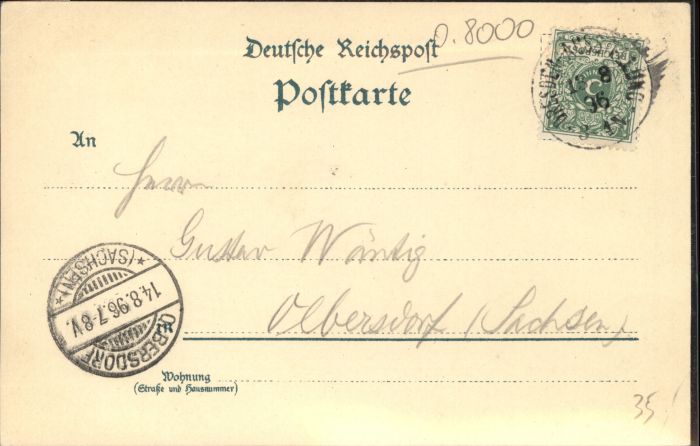 O.8000
Deutsche Reichspost
Postkarte
DRESDEN AUSSTELLUNG
13 8
96
3-4N
An
Herrn
Gustav Wäntig
in Olbersdorf (Sachsen)
OLBERSDORF
*(SACHSEN)*
14.8.96.7-8V.
Wohnung
(Straße und Hausnummer)
35